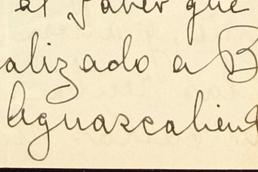 el saber que
alizado a B
Aguascalient